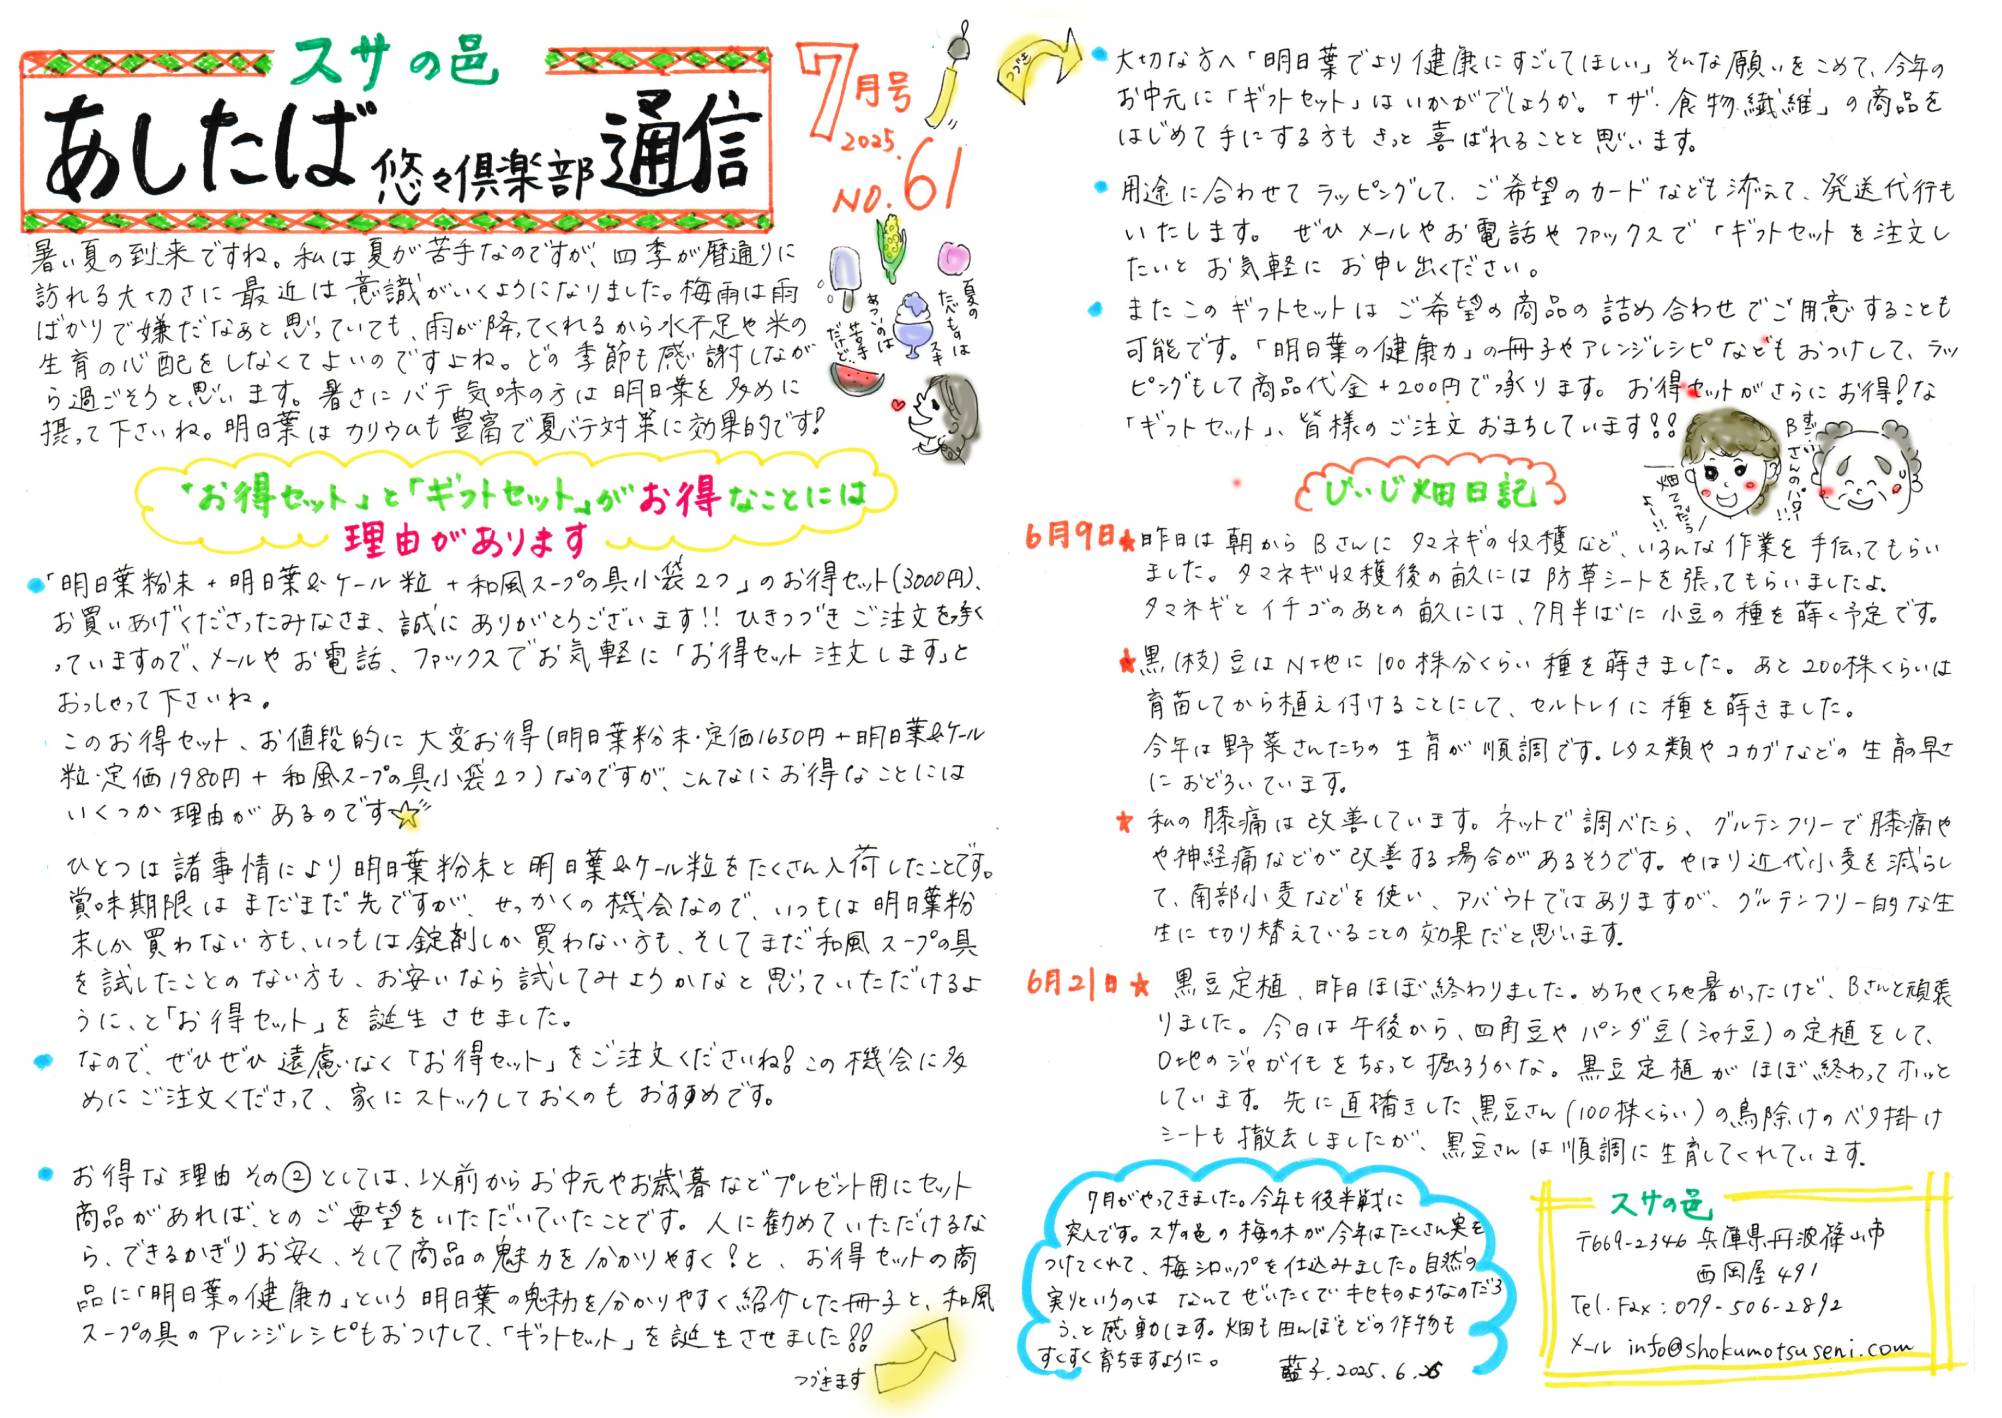 スサの邑
あしたば悠々倶楽部通信
7月号
2025.
NO.61
夏の
たべものは
スキ
あついのは
苦手
だけど…
暑い夏の到来ですね。私は夏が苦手なのですが、四季が暦通りに
訪れる大切さに最近は意識がいくようになりました。梅雨は雨
ばかりで嫌だなあと思っていても、雨が降ってくれるから水不足や米の
生育の心配をしなくてよいのですよね。どの季節も感謝しなが
ら過ごそうと思います。暑さにバテ気味の方は明日葉を多めに
摂って下さいね。明日葉はカリウムも豊富で夏バテ対策に効果的です!
「お得セット」と「ギフトセット」がお得なことには
理由があります
「明日葉粉末+明日葉&ケール粒+和風スープの具小袋2つ」のお得セット(3000円)、
お買いあげくださったみなさま、誠にありがとうございます!! ひきつづきご注文を承
っていますので、メールやお電話、ファックスでお気軽に「お得セット注文します」と
おっしゃって下さいね。
このお得セット、お値段的に大変お得(明日葉粉末・定価1650円+明日葉&ケール
粒・定価1980円+和風スープの具小袋2つ)なのですが、こんなにお得なことには
いくつか理由があるのです
ひとつは諸事情により明日葉粉末と明日葉&ケール粒をたくさん入荷したことです。
賞味期限はまだまだ先ですが、せっかくの機会なので、いつもは明日葉粉
末しか買わない方も、いつもは錠剤しか買わない方も、そしてまだ和風スープの具
を試したことのない方も、お安いなら試してみようかなと思っていただけるよ
うに、と「お得セット」を誕生させました。
なので、ぜひぜひ遠慮なく「お得セット」をご注文くださいね!この機会に多
めにご注文くださって、家にストックしておくのもおすすめです。
お得な理由その②としては、以前からお中元やお歳暮などプレゼント用にセット
商品があれば、とのご要望をいただいていたことです。人に勧めていただけるな
ら、できるかぎりお安く、そして商品の魅力を分かりやすく!と、お得セットの商
品に「明日葉の健康力」という明日葉の魅力を分かりやすく紹介した冊子と、和風
スープの具のアレンジレシピもおつけして、「ギフトセット」を誕生させました!!
つづきます
つづき
大切な方へ「明日葉でより健康にすごしてほしい」そんな願いをこめて、今年の
お中元に「ギフトセット」はいかがでしょうか。「ザ・食物繊維」の商品を
はじめて手にする方もきっと喜ばれることと思います。
用途に合わせてラッピングして、ご希望のカードなども添えて、発送代行も
いたします。ぜひメールやお電話やファックスで「ギフトセットを注文し
たいとお気軽にお申し出ください。
またこのギフトセットはご希望の商品の詰め合わせでご用意することも
可能です。「明日葉の健康力」の冊子やアレンジレシピなどもおつけして、ラッ
ピングもして商品代金+200円で承ります。お得セットがさらにお得!な
「ギフトセット」、皆様のご注文おまちしています!!
Bさんのパワー!!
畑てつだうよー!!
じいじ畑日記
6月9日★昨日は朝からBさんにタマネギの収穫など、いろんな作業を手伝ってもらい
ました。タマネギ収穫後の畝には防草シートを張ってもらいましたよ。
タマネギとイチゴのあとの畝には、7月半ばに小豆の種を蒔く予定です。
★黒(枝)豆はN地に100株分くらい種を蒔きました。あと200株くらいは
育苗してから植え付けることにして、セルトレイに種を蒔きました。
今年は野菜さんたちの生育が順調です。レタス類やコカブなどの生育の早さ
におどろいています。
★私の膝痛は改善しています。ネットで調べたら、グルテンフリーで膝痛や
や神経痛などが改善する場合があるそうです。やはり近代小麦を減らし
て、南部小麦などを使い、アバウトではありますが、グルテンフリー的な生
生に切り替えていることの効果だと思います。
6月21日★黒豆定植、昨日ほぼ終わりました。めちゃくちゃ暑かったけど、Bさんと頑張
りました。今日は午後から、四角豆やパンダ豆(シャチ豆)の定植をして、
O地のジャガイモをちょっと掘ろうかな。黒豆定植がほぼ終わってホッと
しています。先に直播きした黒豆さん(100株くらい)の鳥除けのベタ掛け
シートも撤去しましたが、黒豆さんは順調に生育してくれています。
7月がやってきました。今年も後半戦に
突入です。スサの邑の梅の木が今年はたくさん実を
つけてくれて、梅シロップを仕込みました。自然の
実りというのはなんてぜいたくでキセキのようなのだろ
う、と感動します。畑も田んぼもどの作物も
すくすく育ちますように。
藍子.2025.6.26
スサの邑
〒669-2346 兵庫県丹波篠山市
西岡屋491
Tel・Fax:079-506-2892
メール info@shokumotsuseni.com